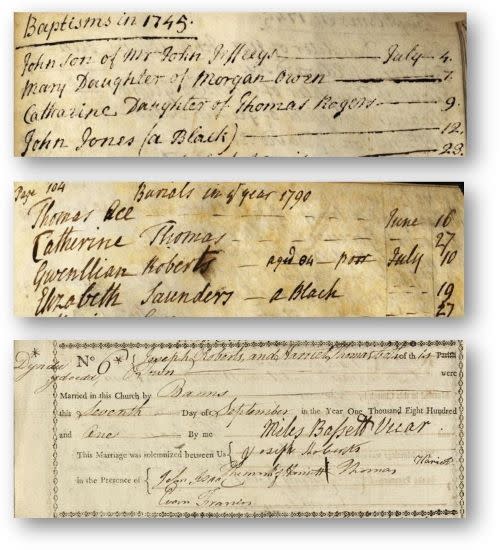 Baptisms in 1745.
John son of Mr John Jeffreys July 4.
Mary Daughter of Morgan Owen 7.
Catharine Daughter of Thomas Rogers 9.
John Jones (a Black) 12.
23.
Page 104 Burials in ye year 1790
Thomas Ace June 16
Catherine Thomas 27
Gwenllian Roberts aged 84 poor July 10
Elizabeth Saunders a Black 19
27
No 6 Joseph Roberts, and Harriet Thomas of this Parish
were
Married in this Church by Banns
this Seventh Day of September in the Year One Thousand Eight Hundred
and One By me Miles Bassett Vicar.
This Marriage was solemnized between Us Joseph Roberts
Harriett Thomas
in the Presence of
Evan Francis